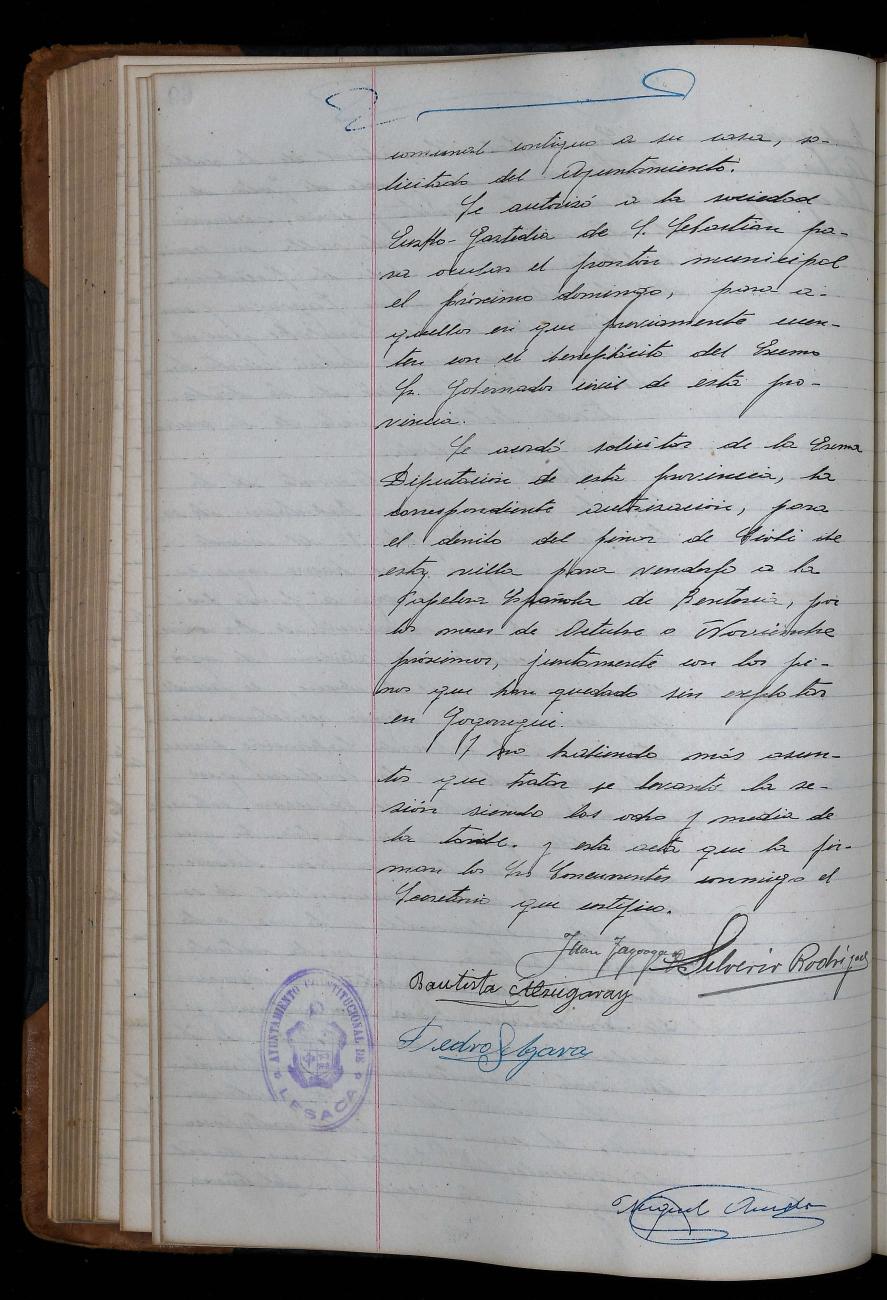 comunal contiguo a su casa, so-
licitado del Ayuntamiento.
Se autorizó a la sociedad
Eusko-Gastedia de S. Sebastian pa-
ra ocupar el frontón municipal
el próximo domingo, para a-
quellos en que previamente cuen-
ten con el beneplácito del Excmo
Sr. Gobernador civil de esta pro-
vincia.
Se acordó solicitar de la Excma
Diputación de esta provincia, la
correspondiente autorización, para
el del pinar de de
esta villa para venderlo a la
Papelera Española de Rentería, por
los meses de Octubre o Noviembre
próximos, juntamente con los pi-
nos que han quedado sin explotar
en
Y no habiendo más asun-
tos que tratar se levantó la se-
sión siendo las ocho y media de
la tarde. y esta acta que la fir-
man los Srs Concurrentes conmigo el
Secretario que certifico.
Juan Silverio Rodríguez
Bautista
Pedro
AYUNTAMIENTO CONSTITUCIONAL DE
LESACA
Miguel